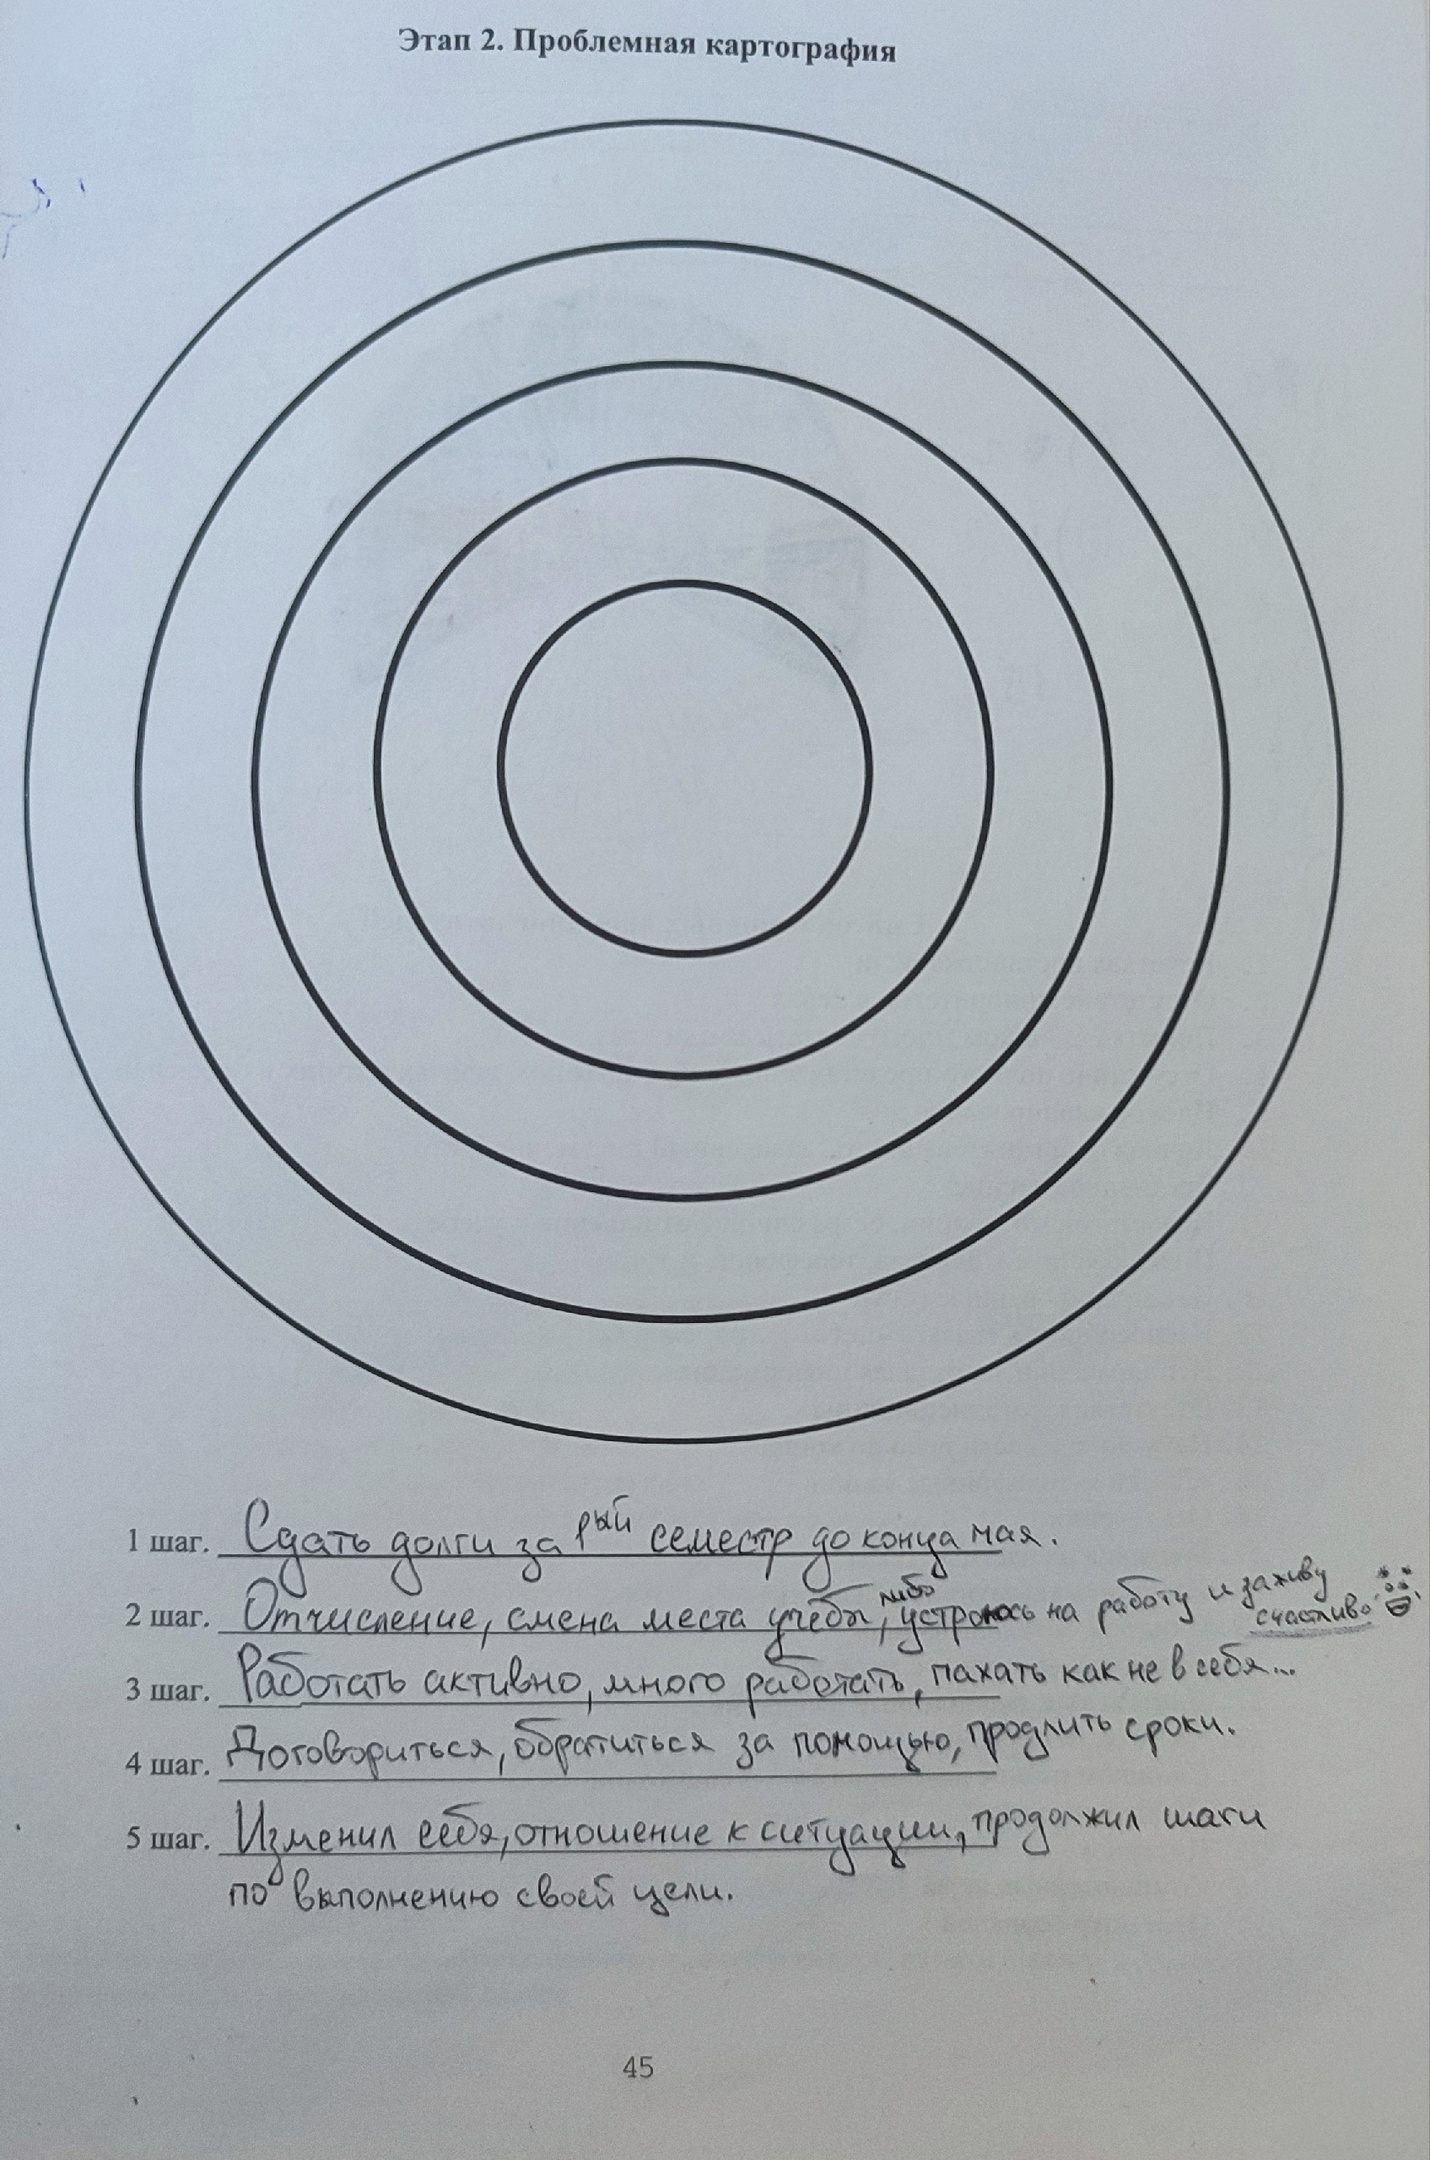 Этап 2. Проблемная картография
1 шаг. Сдать долги за 1ый семестр до конца мая.
2 шаг. Отчисление, смена места учёбы, либо устроюсь на работу и заживу счастливо
3 шаг. Работать активно, много работать, пахать как не в себя...
4 шаг. Договориться, обратиться за помощью, продлить сроки.
5 шаг. Изменил себя, отношение к ситуации, продолжил шаги
по выполнению своей цели.
45